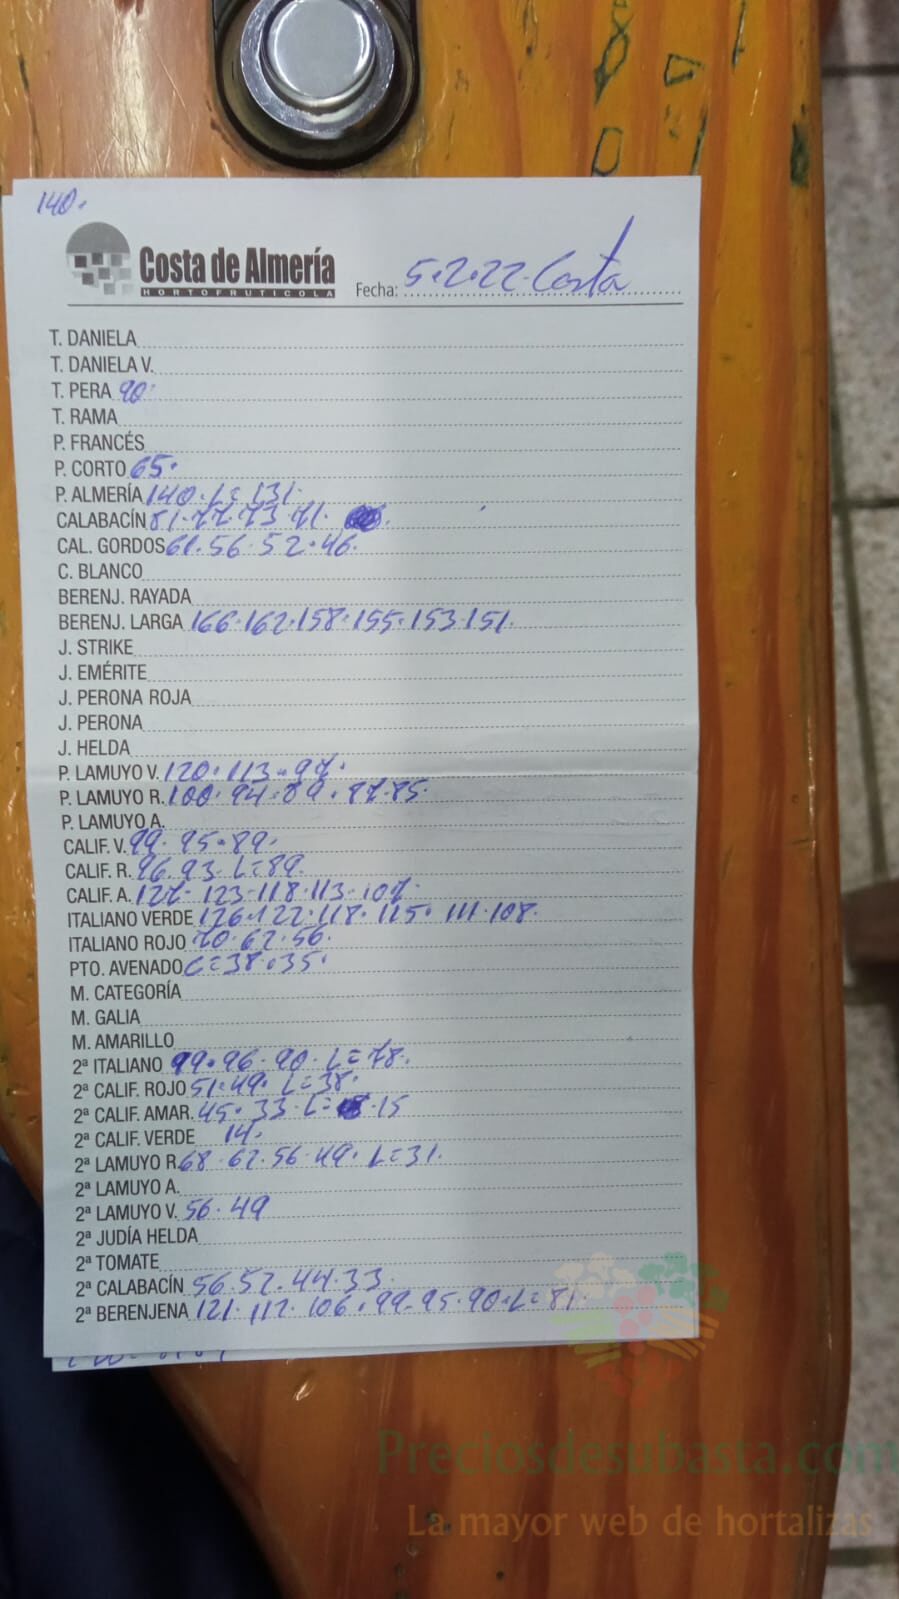 140.
Costa de Almería
HORTOFRUTICOLA
Fecha: 5.2.22. Costa
T. DANIELA
T. DANIELA V.
T. PERA 90
T. RAMA
P. FRANCÉS
P. CORTO 65.
P. ALMERÍA 140. L= 131.
CALABACÍN 81.77.73.71.
CAL. GORDOS 61.56.52.46.
C. BLANCO
BERENJ. RAYADA
BERENJ. LARGA 166.162.158.155.153.151.
J. STRIKE
J. EMÉRITE
J. PERONA ROJA
J. PERONA
J. HELDA
P. LAMUYO V. 120.113.97.
P. LAMUYO R. 100.94.89.87.85.
P. LAMUYO A.
CALIF. V. 99.95.89.
CALIF. R. 96.93. L=89.
CALIF. A. 127.123.118.113.107.
ITALIANO VERDE 126.122.118.115.111.108.
ITALIANO ROJO 70.62.56.
PTO. AVENADO C=38.35.
M. CATEGORÍA
M. GALIA
M. AMARILLO
2ª ITALIANO 99.96.90. L=78.
2ª CALIF. ROJO 51.49. L=38.
2ª CALIF. AMAR. 45.33. L= 15
2ª CALIF. VERDE 14.
2ª LAMUYO R. 68.62.56.49. L=31.
2ª LAMUYO A.
2ª LAMUYO V. 56.49
2ª JUDÍA HELDA
2ª TOMATE
2ª CALABACÍN 56.52.44.33.
2ª BERENJENA 121.112.106.99.95.90. L=81.
Preciosdesubasta.com
La mayor web de hortalizas